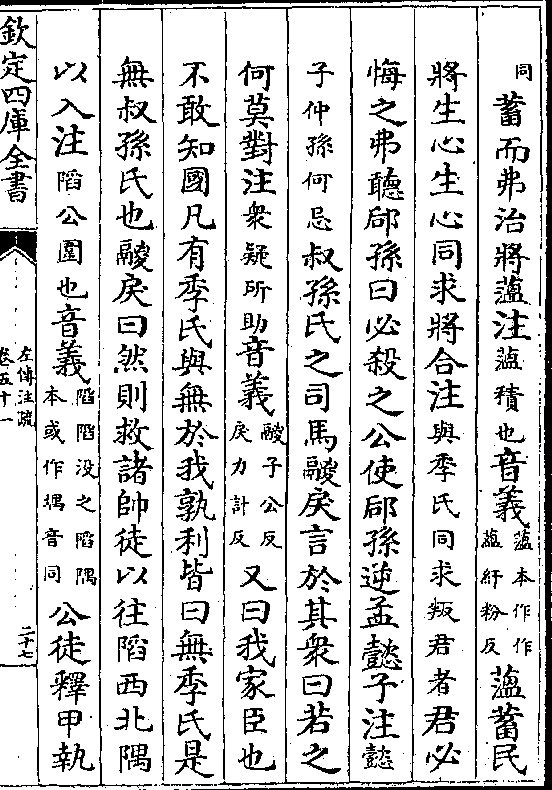 同蓄而弗治將薀注薀積也音義薀本作作藴紆粉反薀蓄民
將生心生心同求將合注與季氏同求叛君者君必
悔之弗聽郈孫曰必殺之公使郈孫逆孟懿子注懿
子仲孫何忌叔孫氏之司馬鬷戾言於其衆曰若之
何莫對注衆疑所助音義鬷子公反戾力計反又曰我家臣也
不敢知國凡有季氏與無於我孰利皆曰無季氏是
無叔孫氏也鬷戾曰然則救諸帥徒以往陷西北隅
以入注陷公圍也音義陷陷没之陷隅本或作堣音同公徒釋甲執
欽定四庫全書
左傳注疏
卷五十一
二十七